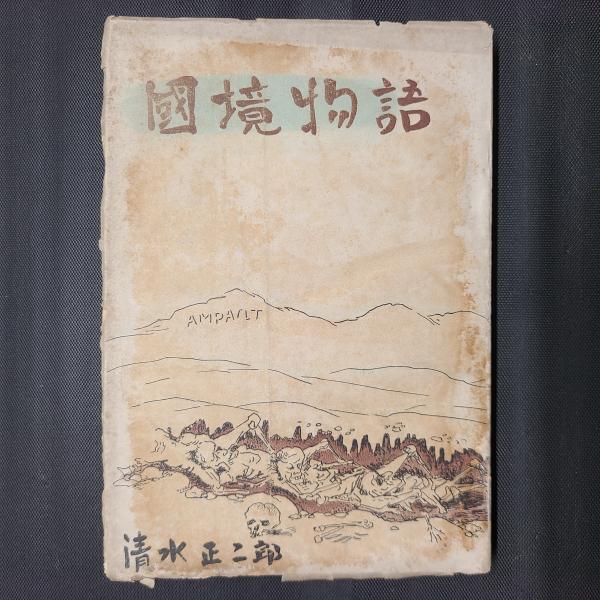 國境物語
AMPAГLT
清水正二郎